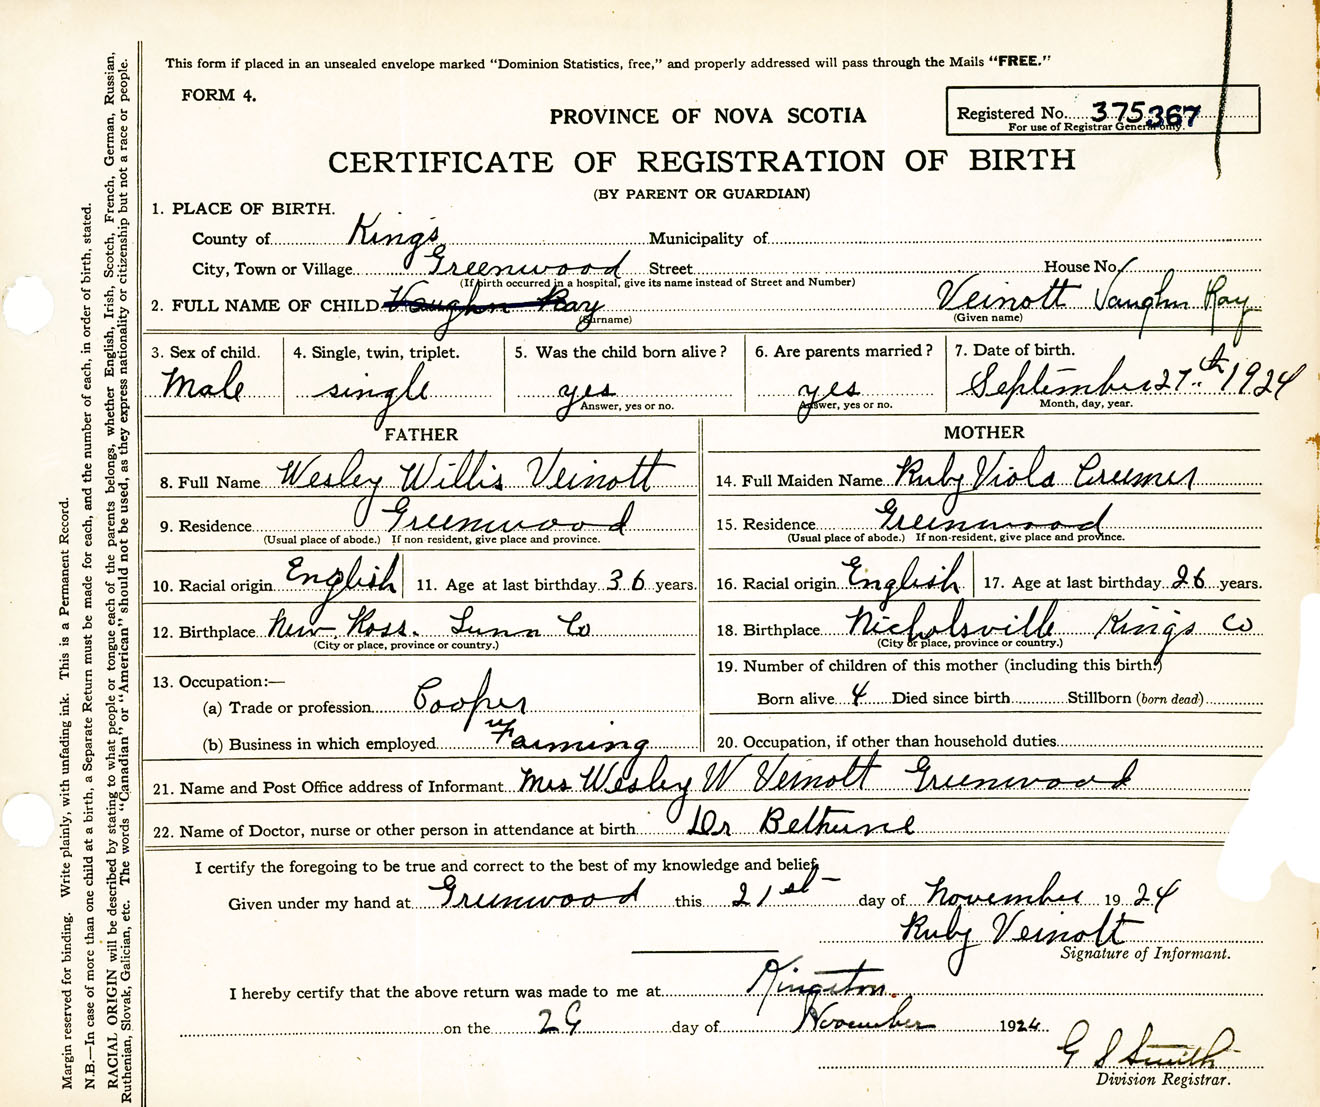 This form if placed in an unsealed envelope marked "Dominion Statistics, free," and properly addressed will pass through the Mails "FREE."
FORM 4.
PROVINCE OF NOVA SCOTIA
Registered No. 375367
For use of Registrar General only.
CERTIFICATE OF REGISTRATION OF BIRTH
(BY PARENT OR GUARDIAN)
1. PLACE OF BIRTH.
County of King's Municipality of
City, Town or Village Greenwood Street House No.
(If birth occurred in a hospital, give its name instead of Street and Number)
2. FULL NAME OF CHILD Vaughn Ray Veinott Vaughn Ray
(Surname) (Given name)
3. Sex of child. 4. Single, twin, triplet. 5. Was the child born alive? 6. Are parents married? 7. Date of birth.
Male single yes yes September 27th 1924
Answer, yes or no. Answer, yes or no. Month, day, year.
FATHER MOTHER
8. Full Name Wesley Willis Veinott 14. Full Maiden Name Ruby Viola Creemer
9. Residence Greenwood 15. Residence Greenwood
(Usual place of abode.) If non resident, give place and province. (Usual place of abode.) If non-resident, give place and province.
10. Racial origin English 11. Age at last birthday 36 years. 16. Racial origin English 17. Age at last birthday 26 years.
12. Birthplace New Ross. Lunn Co 18. Birthplace Nicholsville Kings Co
(City or place, province or country.) (City or place, province or country.)
19. Number of children of this mother (including this birth.)
13. Occupation:—
(a) Trade or profession Cooper Born alive 4 Died since birth Stillborn (born dead)
(b) Business in which employed Farming 20. Occupation, if other than household duties
21. Name and Post Office address of Informant Mrs Wesley W Veinott Greenwood
22. Name of Doctor, nurse or other person in attendance at birth Dr Bethune
I certify the foregoing to be true and correct to the best of my knowledge and belief.
Given under my hand at Greenwood this 21st day of November 1924
Ruby Veinott
Signature of Informant.
I hereby certify that the above return was made to me at Kingston.
on the 29 day of November 1924
G S Smith
Division Registrar.
Margin reserved for binding. Write plainly, with unfading ink. This is a Permanent Record.
N.B.—In case of more than one child at a birth, a Separate Return must be made for each, and the number of each, in order of birth, stated.
RACIAL ORIGIN will be described by stating to what people or tongue each of the parents belongs, whether English, Irish, Scotch, French, German, Russian,
Ruthenian, Slovak, Galician, etc. The words "Canadian" or "American" should not be used, as they express nationality or citizenship but not a race or people.